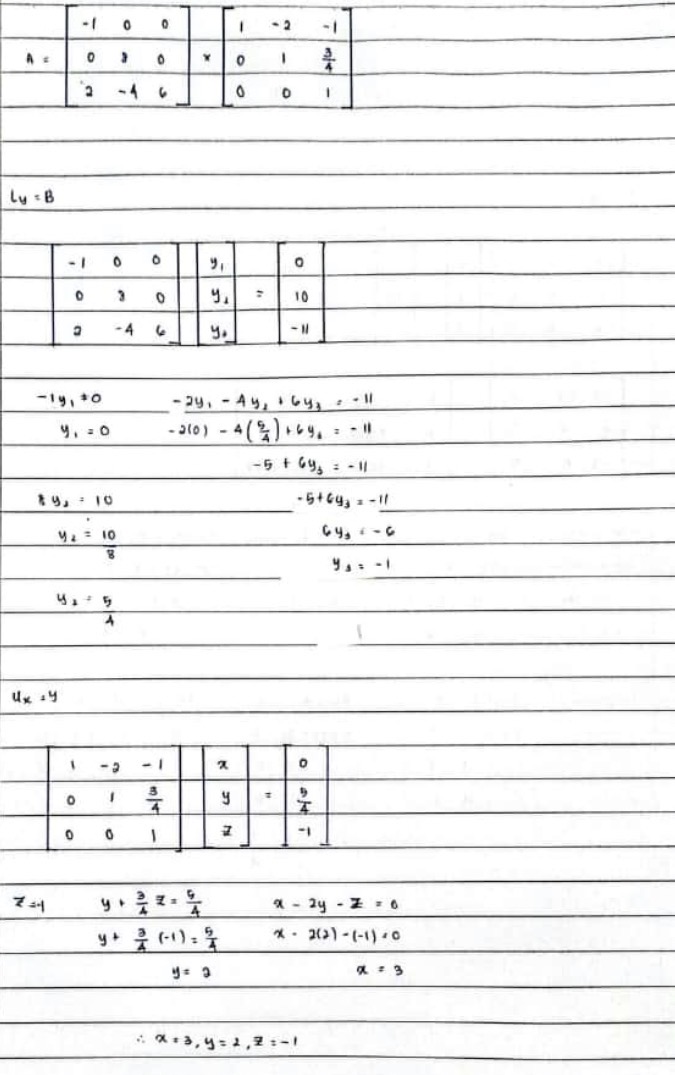 A = [ -1 0 0 ; 0 8 0 ; 2 -4 6 ] × [ 1 -2 -1 ; 0 1 3/4 ; 0 0 1 ]
Ly = B
[ -1 0 0 ; 0 8 0 ; 2 -4 6 ] [ y₁ ; y₂ ; y₃ ] = [ 0 ; 10 ; -11 ]
-1y₁ = 0   -2y₁ - 4y₂ + 6y₃ = -11
y₁ = 0   -2(0) - 4(5/4) + 6y₃ = -11
-5 + 6y₃ = -11
8y₂ = 10   -5+6y₃ = -11
y₂ = 10/8   6y₃ = -6
y₃ = -1
y₂ = 5/4
Ux = y
[ 1 -2 -1 ; 0 1 3/4 ; 0 0 1 ] [ x ; y ; z ] = [ 0 ; 5/4 ; -1 ]
z=-1   y + 3/4 z = 5/4   x - 2y - z = 0
y + 3/4 (-1) = 5/4   x - 2(2) - (-1) = 0
y = 2   x = 3
∴ x = 3, y = 2, z = -1